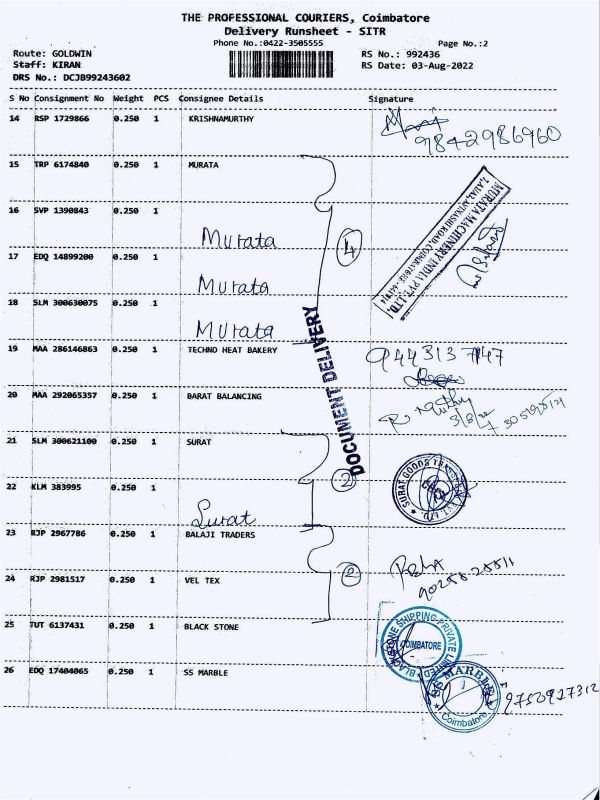 THE PROFESSIONAL COURIERS, Coimbatore
Delivery Runsheet - SITR
Phone No.:0422-3505555 Page No.:2
Route: GOLDWIN RS No.: 992436
Staff: KIRAN RS Date: 03-Aug-2022
DRS No.: DCJB99243602
S No Consignment No Weight PCS Consignee Details Signature
14 RSP 1729866 0.250 1 KRISHNAMURTHY
9842986960
15 TRP 6174840 0.250 1 MURATA
16 SVP 1390843 0.250 1
Murata
4
MURATA MACHINERY INDIA PVT. LTD.
17 EDQ 14899200 0.250 1
Murata
18 SLM 300630075 0.250 1
Murata
DOCUMENT DELIVERY
19 MAA 286146863 0.250 1 TECHNO HEAT BAKERY
9443137147
20 MAA 292065357 0.250 1 BARAT BALANCING
3/8/22
21 SLM 300621100 0.250 1 SURAT
2
SURAT GOODS TRANSPORT PVT. LTD.
22 KLM 383995 0.250 1
Surat
23 RJP 2967786 0.250 1 BALAJI TRADERS
2
24 RJP 2981517 0.250 1 VEL TEX
25 TUT 6137431 0.250 1 BLACK STONE
BLACK STONE SHIPPING PRIVATE LIMITED
COIMBATORE
26 EDQ 17404065 0.250 1 SS MARBLE
SS MARBLE
Coimbatore
9750917312